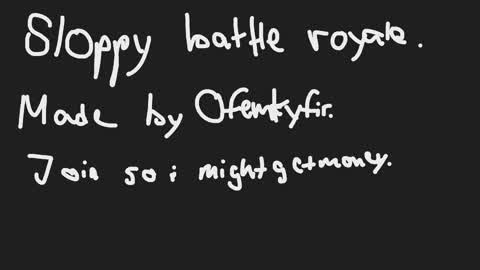 Sloppy battle royale.
Made by
Join so i might get money.